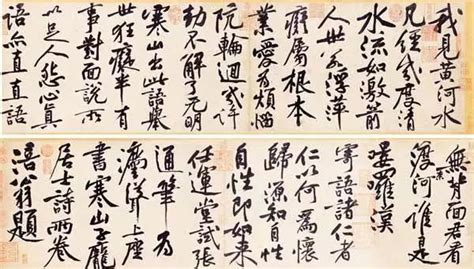 我見黃河水
凡經幾度清
水流如激箭
人世若浮萍
癡屬根本
業愛為煩惱
阬輪迴幾許
劫不解了无明
寒山出此語舉
世狂癡半有
事對面說所
以足人怨心真
語亦直直語
無背面君看
渡奈河誰是
嘍羅漢
寄語諸仁者
仁以何為懷
歸源知自性
自性即如來
任運堂試張
通筆為
上座
書寒山子龐
居士詩兩卷
涪翁題